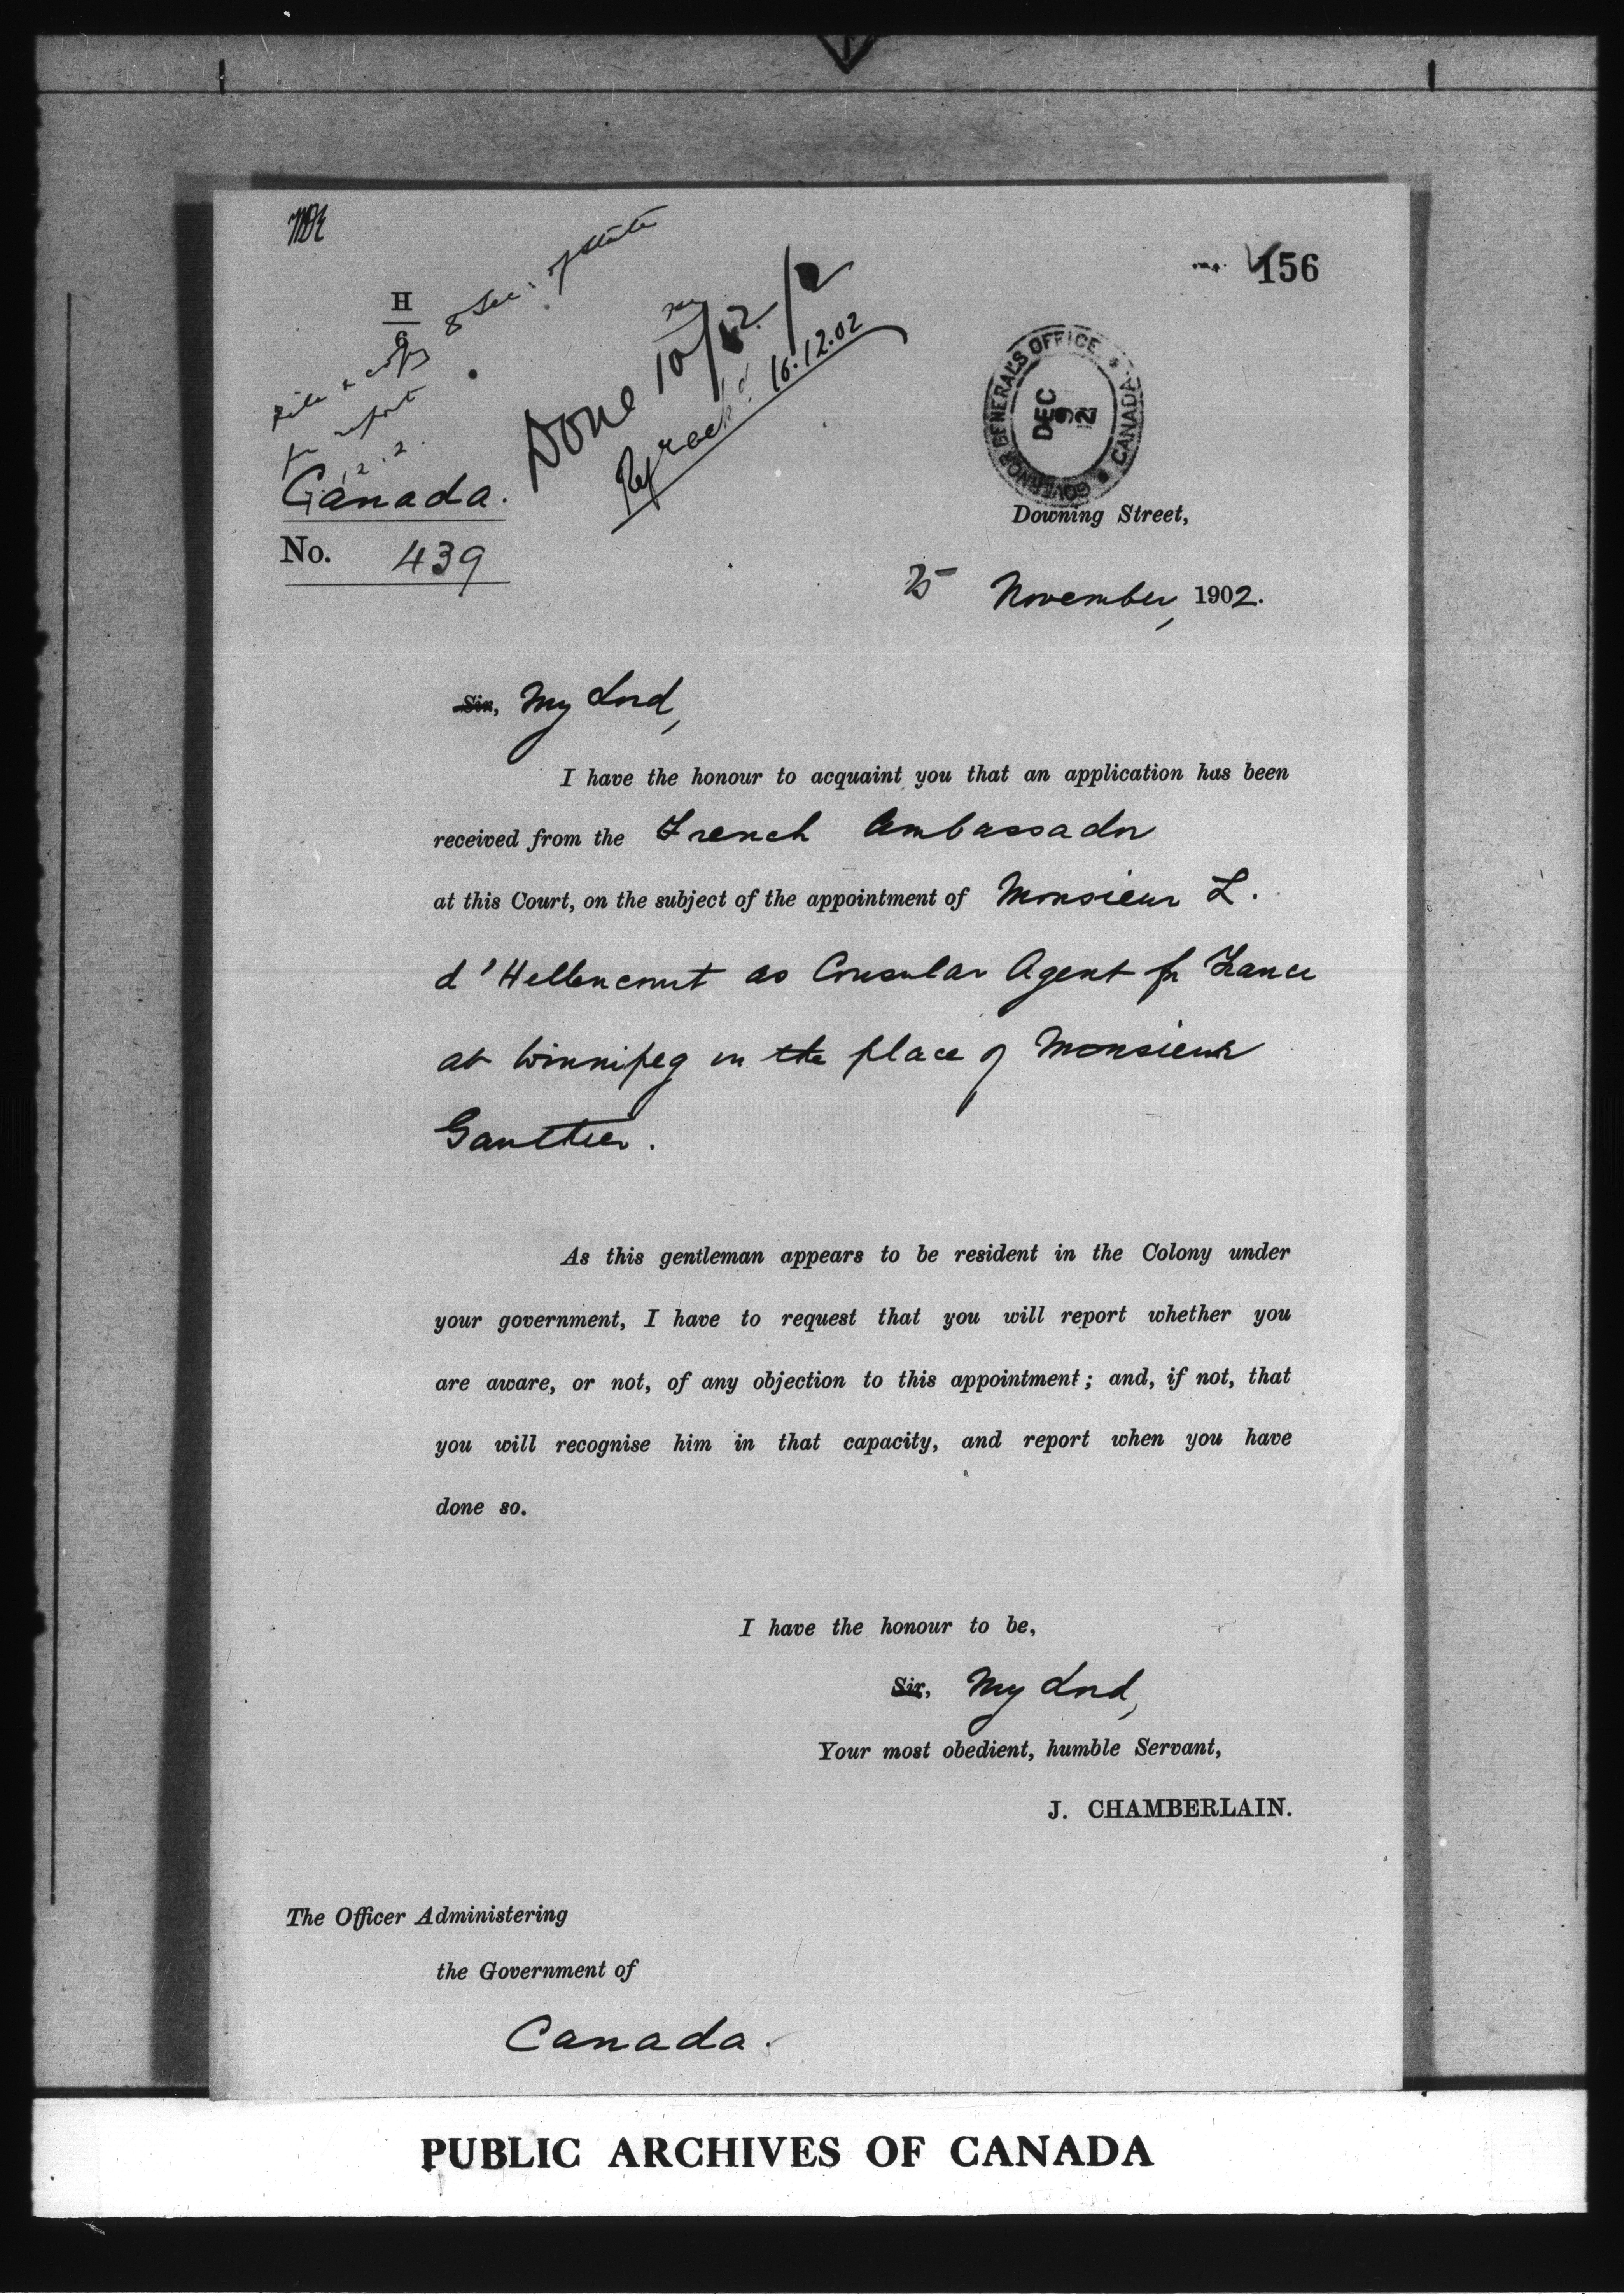 156
H
6
File & copy to Sec. of State
for report
Done 10/12/2
Rep rec'd 16.12.02
GOVERNOR GENERAL'S OFFICE * CANADA *
DEC
9
02
Canada.
No. 439
Downing Street,
25 November, 1902.
Sir, My Lord,
I have the honour to acquaint you that an application has been
received from the French Ambassador
at this Court, on the subject of the appointment of Monsieur L.
d'Hellencourt as Consular Agent for France
at Winnipeg in the place of Monsieur
Gaulthier.
As this gentleman appears to be resident in the Colony under
your government, I have to request that you will report whether you
are aware, or not, of any objection to this appointment; and, if not, that
you will recognise him in that capacity, and report when you have
done so.
I have the honour to be,
Sir, My Lord,
Your most obedient, humble Servant,
J. CHAMBERLAIN.
The Officer Administering
the Government of
Canada.
PUBLIC ARCHIVES OF CANADA